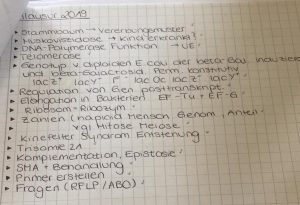 Klausur 2019
• Stammbaum → Vererbungsmuster
• Mukoviszidose → Kind erkrankt?
• DNA-Polymerase Funktion → UE
• Telomerase
• Genotyp v. diploiden E. coli der beta Gal. induziert
und beta-Galactosid. Perm. konstitutiv
lacZ⁻ lacY⁺ P⁻ lac Oc lacZ⁺ lacY⁻
• Regulation von Gen posttranskript.
• Elongation in Bakterien EF-Tu + EF-G
• Ribosom = Ribozym
• Zahlen (haploid Mensch Genom, Anteil
• vgl Mitose Meiose
• Klinefelter Syndrom Entstehung
• Trisomie 21
• Komplementation, Epistasie
• SMA + Behandlung
• Primer erstellen
• Fragen (RFLP / AB0)